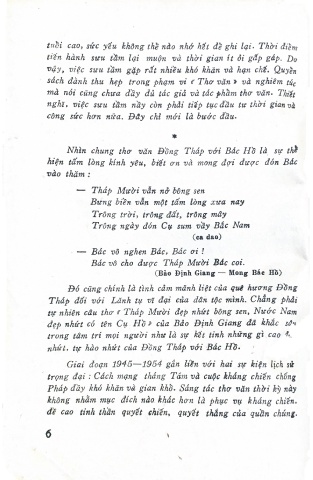 tuổi cao, sức yếu không thể nào nhớ hết để ghi lại. Thời điểm
tiến hành sưu tầm lại muộn và thời gian ít ỏi gấp gáp. Do
vậy, việc sưu tầm gặp rất nhiều khó khăn và hạn chế. Quyển
sách đành thu hẹp trong phạm vi « Thơ văn » và nghiêm túc
mà nói cũng chưa đầy đủ tác giả và tác phẩm thơ văn. Thiết
nghĩ, việc sưu tầm nầy còn phải tiếp tục đầu tư thời gian và
công sức hơn nữa. Đây chỉ mới là bước đầu.
*
Nhìn chung thơ văn Đồng Tháp với Bác Hồ là sự thể
hiện tấm lòng kính yêu, biết ơn và mong đợi được đón Bác
vào thăm :
— Tháp Mười vẫn nở bông sen
Bưng biền vẫn một tấm lòng xưa nay
Trông trời, trông đất, trông mây
Trông ngày đón Cụ sum vầy Bắc Nam
(ca dao)
— Bác vô nghen Bác, Bác ơi !
Bác vô cho được Tháp Mười Bác coi.
(Bảo Định Giang — Mong Bác Hồ)
Đó cũng chính là tình cảm mãnh liệt của quê hương Đồng
Tháp đối với Lãnh tụ vĩ đại của dân tộc mình. Chẳng phải
tự nhiên câu thơ « Tháp Mười đẹp nhứt bông sen, Nước Nam
đẹp nhứt có tên Cụ Hồ » của Bảo Định Giang đã khắc sâu
trong tâm trí mọi người như là sự kết tinh những gì cao
nhứt, tự hào nhứt của Đồng Tháp với Bác Hồ.
Giai đoạn 1945—1954 gắn liền với hai sự kiện lịch sử
trọng đại : Cách mạng tháng Tám và cuộc kháng chiến chống
Pháp đầy khó khăn và gian khổ. Sáng tác thơ văn thời kỳ này
không nhằm mục đích nào khác hơn là phục vụ kháng chiến,
đề cao tinh thần quyết chiến, quyết thắng của quần chúng.
6